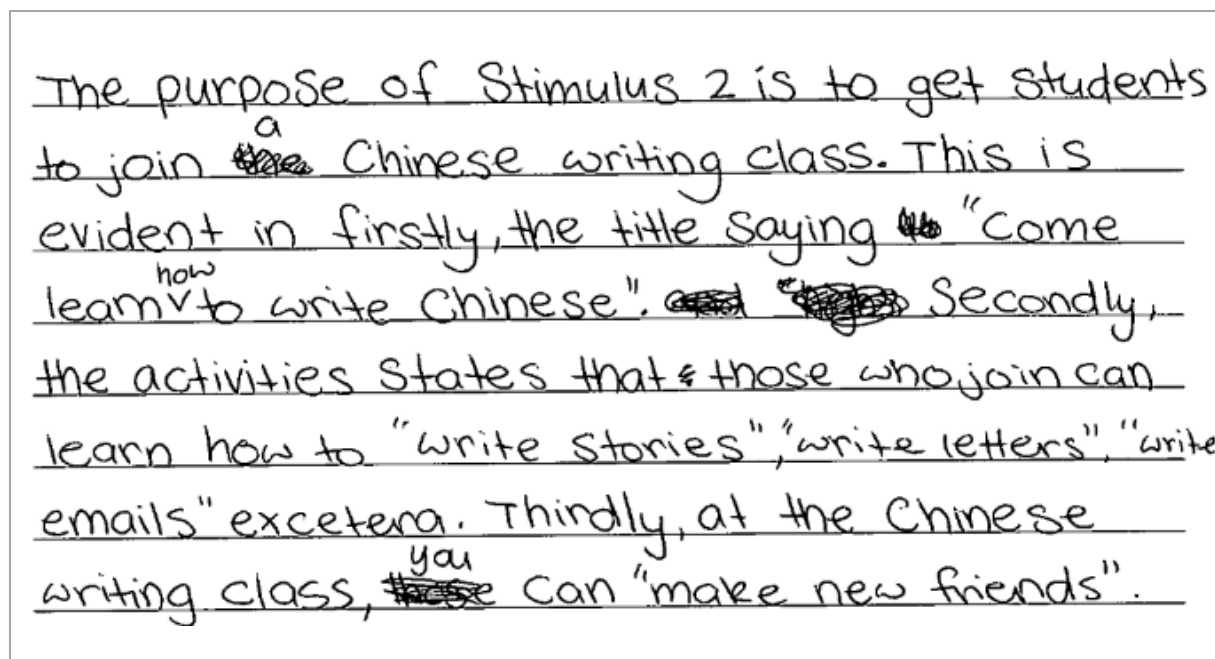 The purpose of Stimulus 2 is to get students
to join a Chinese writing class. This is
evident in firstly, the title saying "Come
learn how to write Chinese". Secondly,
the activities states that those who join can
learn how to "write stories", "write letters", "write
emails" excetera. Thirdly, at the Chinese
writing class, you can "make new friends".